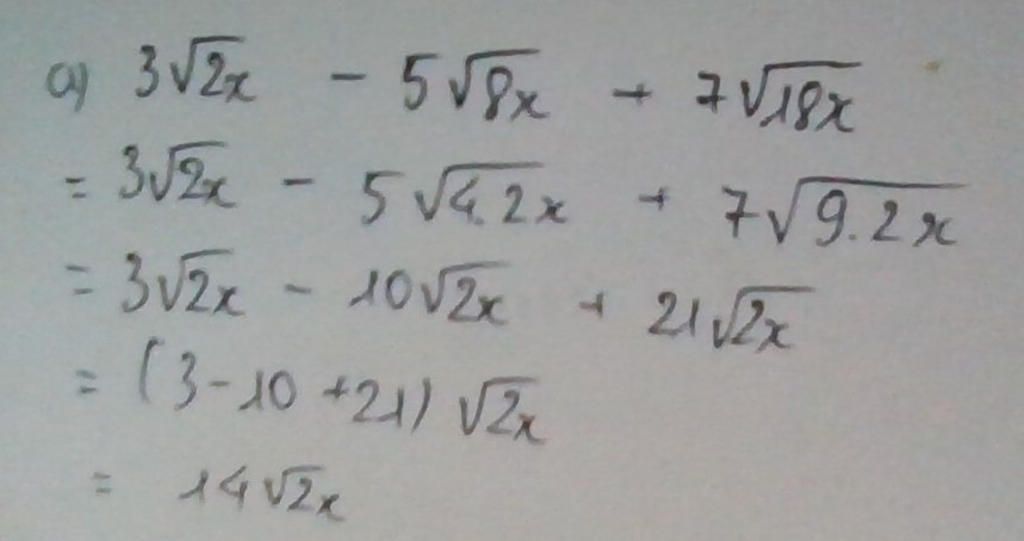 a) 3√2x - 5√8x + 7√18x
= 3√2x - 5√4.2x + 7√9.2x
= 3√2x - 10√2x + 21√2x
= (3-10+21)√2x
= 14√2x